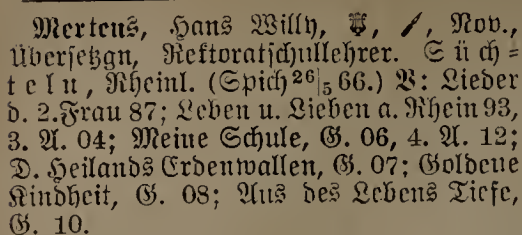 Mertens, Hans Willy, Nov.,
Übersetzgn, Rektoratschullehrer. Süch=
teln, Rheinl. (Spich 26/5 66.) V: Lieder
d. 2. Frau 87; Leben u. Lieben a. Rhein 93,
3. A. 04; Meine Schule, G. 06, 4. A. 12;
D. Heilands Erdenwallen, G. 07; Goldene
Kindheit, G. 08; Aus des Lebens Tiefe,
G. 10.